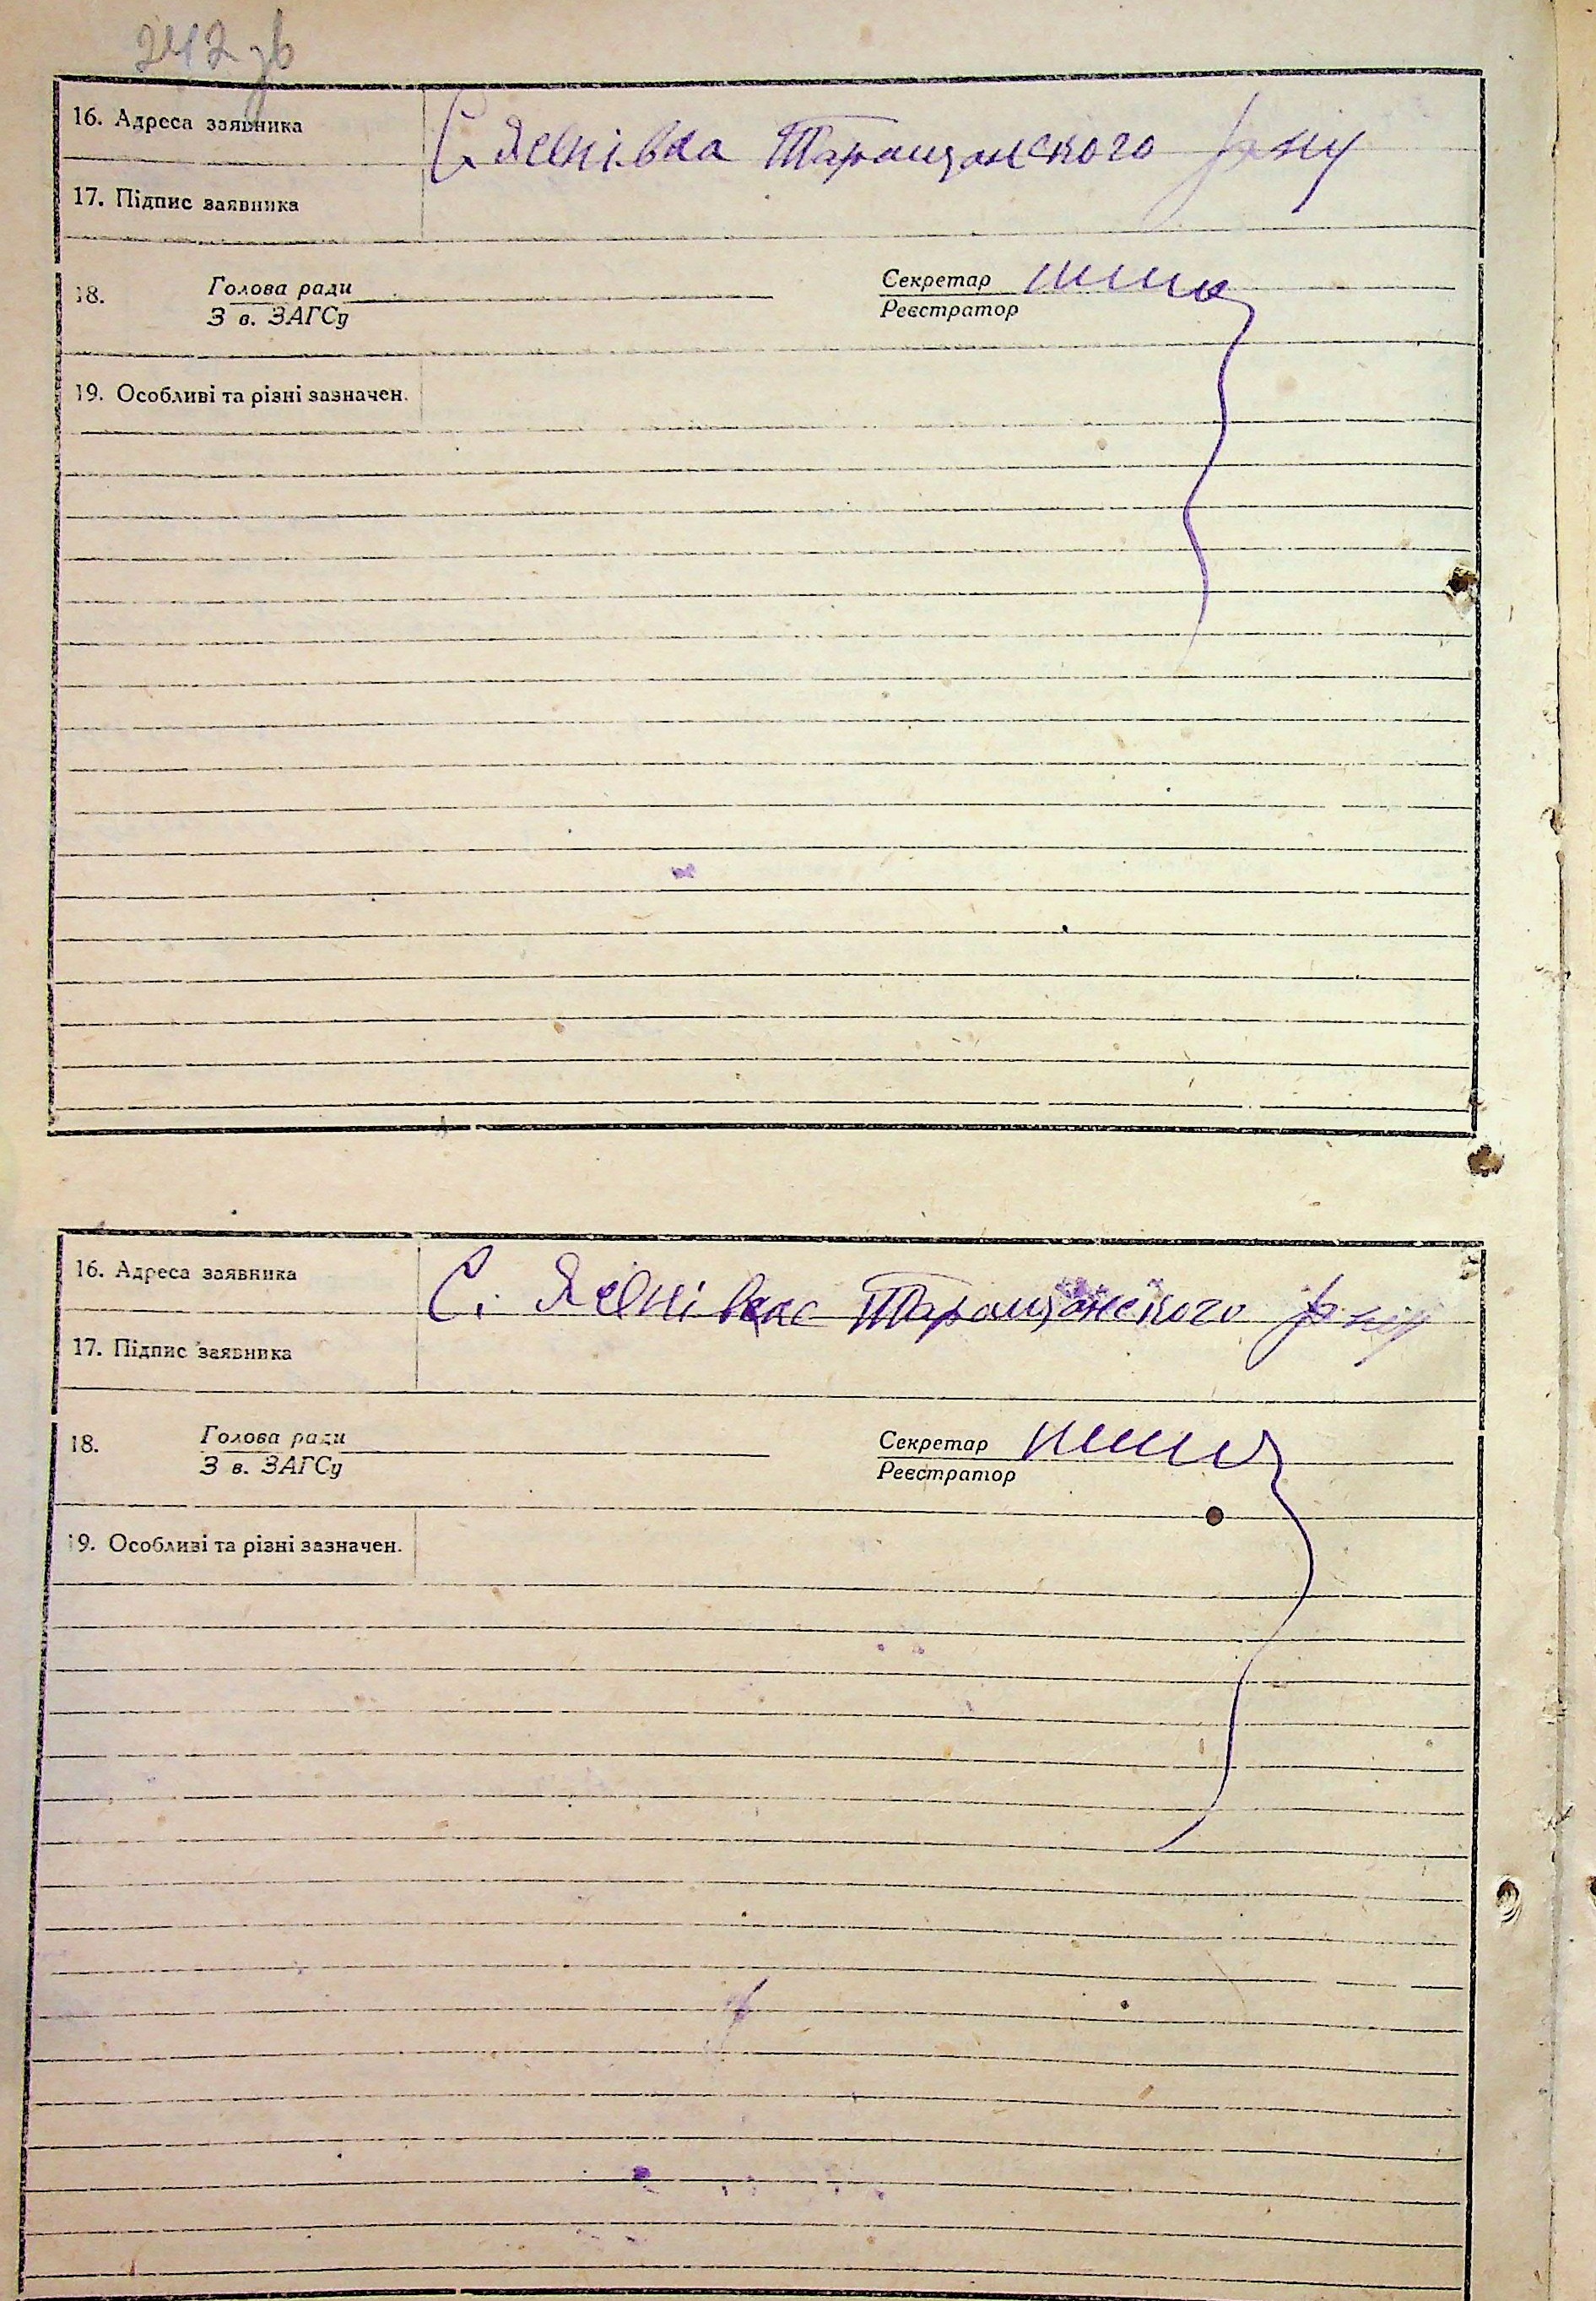 242 зв
16. Адреса заявника С. Яснівка Таращанського р-ну
17. Підпис заявника
18. Голова ради Секретар
З в. ЗАГСу Реєстратор
19. Особливі та різні зазначен.
16. Адреса заявника С. Яснівка Таращанського р-ну
17. Підпис заявника
18. Голова ради Секретар
З в. ЗАГСу Реєстратор
19. Особливі та різні зазначен.